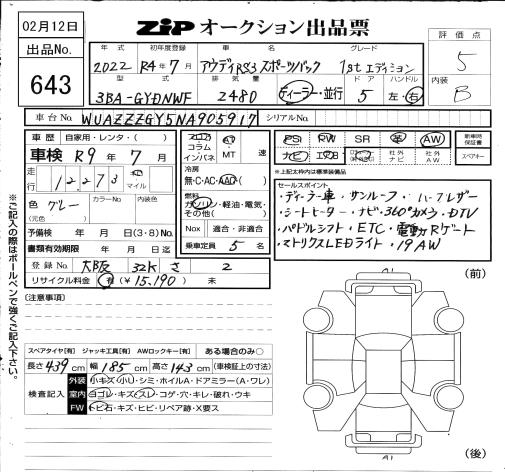 02月12日
ZiP オークション出品票
評価点
5
出品No.
643
年式 初年度登録 車名 グレード
2022 R4年7月 アウディRS3 スポーツバック 1st エディション
型式 排気量 ドア ハンドル
3BA-GYDNWF 2480 ディーラー・並行 5 左・右
内装
B
車台No. WUAZZZGY5NA905917 シリアルNo.
車歴 自家用・レンタ・( )
車検 R9年7月
走行 12,273 km マイル
色 グレー カラーNo. 内装色
(元色)
予備検 年 月 日(3・8)No.
書類有効期限 年 月 日迄
登録No. 大阪 32K さ 2
リサイクル料金 有 (¥15,190) 未
コラム
インパネ
AT
MT
速
冷房
無・C・AC・AAC
燃料
ガソリン・軽油・電気・
その他( )
Nox 適合・非適合
乗車定員 5 名
PS PW SR 革 AW
ナビ エアB 社外ナビ 社外AW
新車時保証書
スペアキー
*上記太枠内は標準装備品
セールスポイント
・ディーラー車・サンルーフ・ハーフレザー
・シートヒーター・ナビ・360°カメラ・DTV
・パドルシフト・ETC・電動Rゲート
・マトリクスLEDライト・19AW
(注意事項)
※ご記入の際はボールペンで強くご記入下さい。
(前)
スペアタイヤ[有] ジャッキ工具[有] AWロックキー[有] ある場合のみ○
長さ 439 cm 幅 185 cm 高さ 143 cm (車検証上の寸法)
検査記入
外装 小キズ・小U・シミ・ホイルA・ドアミラー(A・ワレ)
室内 ヨゴレ・キズ・スレ・コゲ・穴・キレ・破れ・ウキ
FW トビ石・キズ・ヒビ・リペア跡・X要ス
(後)